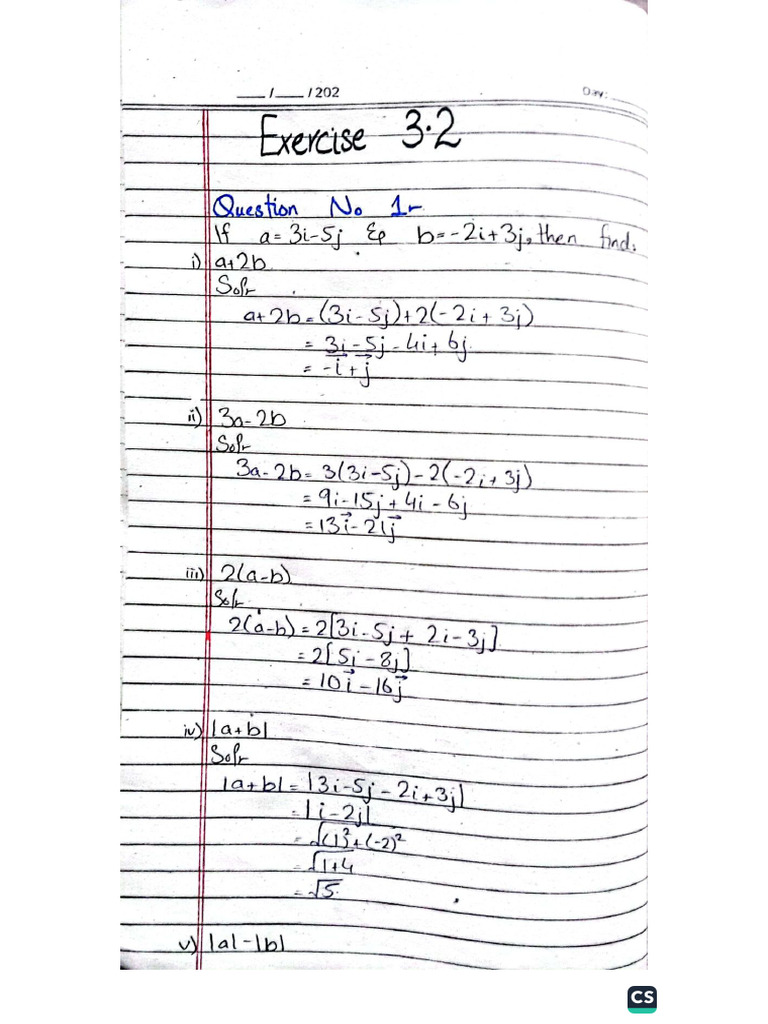 __/__/202 Day:
Exercise 3.2
Question No 1:-
If a = 3i-5j & b=-2i+3j, then find.
i) a+2b
Sol:-
a+2b = (3i-5j)+2(-2i+3j)
= 3i-5j-4i+6j
= -i+j
ii) 3a-2b
Sol:-
3a-2b = 3(3i-5j)-2(-2i+3j)
= 9i-15j+4i-6j
= 13i-21j
iii) 2(a-b)
Sol:-
2(a-b) = 2[3i-5j+2i-3j]
= 2[5i-8j]
= 10i-16j
iv) |a+b|
Sol:-
|a+b| = |3i-5j-2i+3j|
= |i-2j|
= √(1)²+(-2)²
= √1+4
= √5
v) |a|-|b|
CS